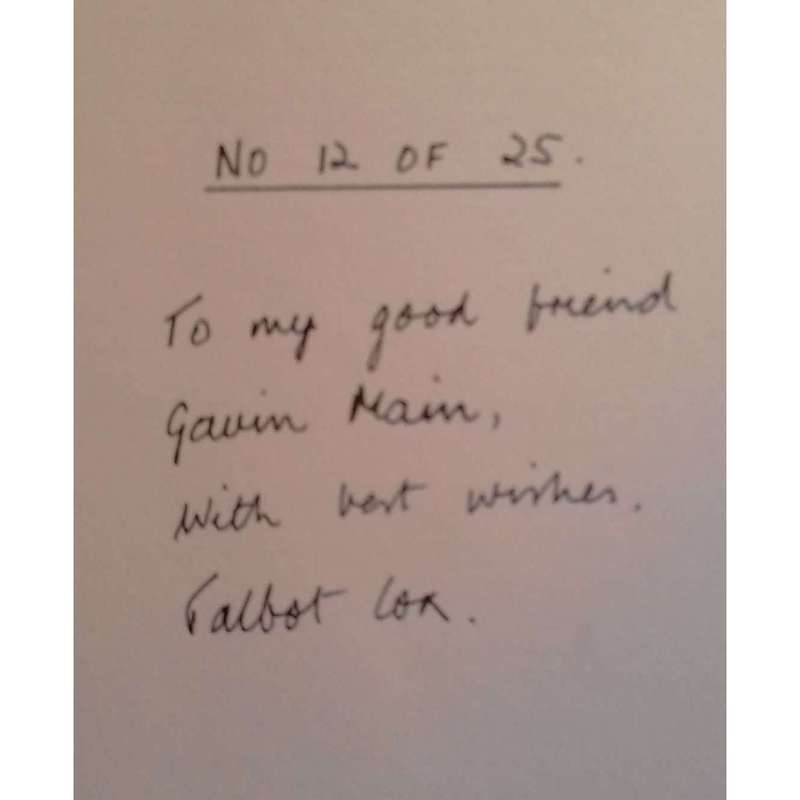 NO 12 OF 25.
To my good friend
Gavin Main,
With best wishes.
Talbot Cox.